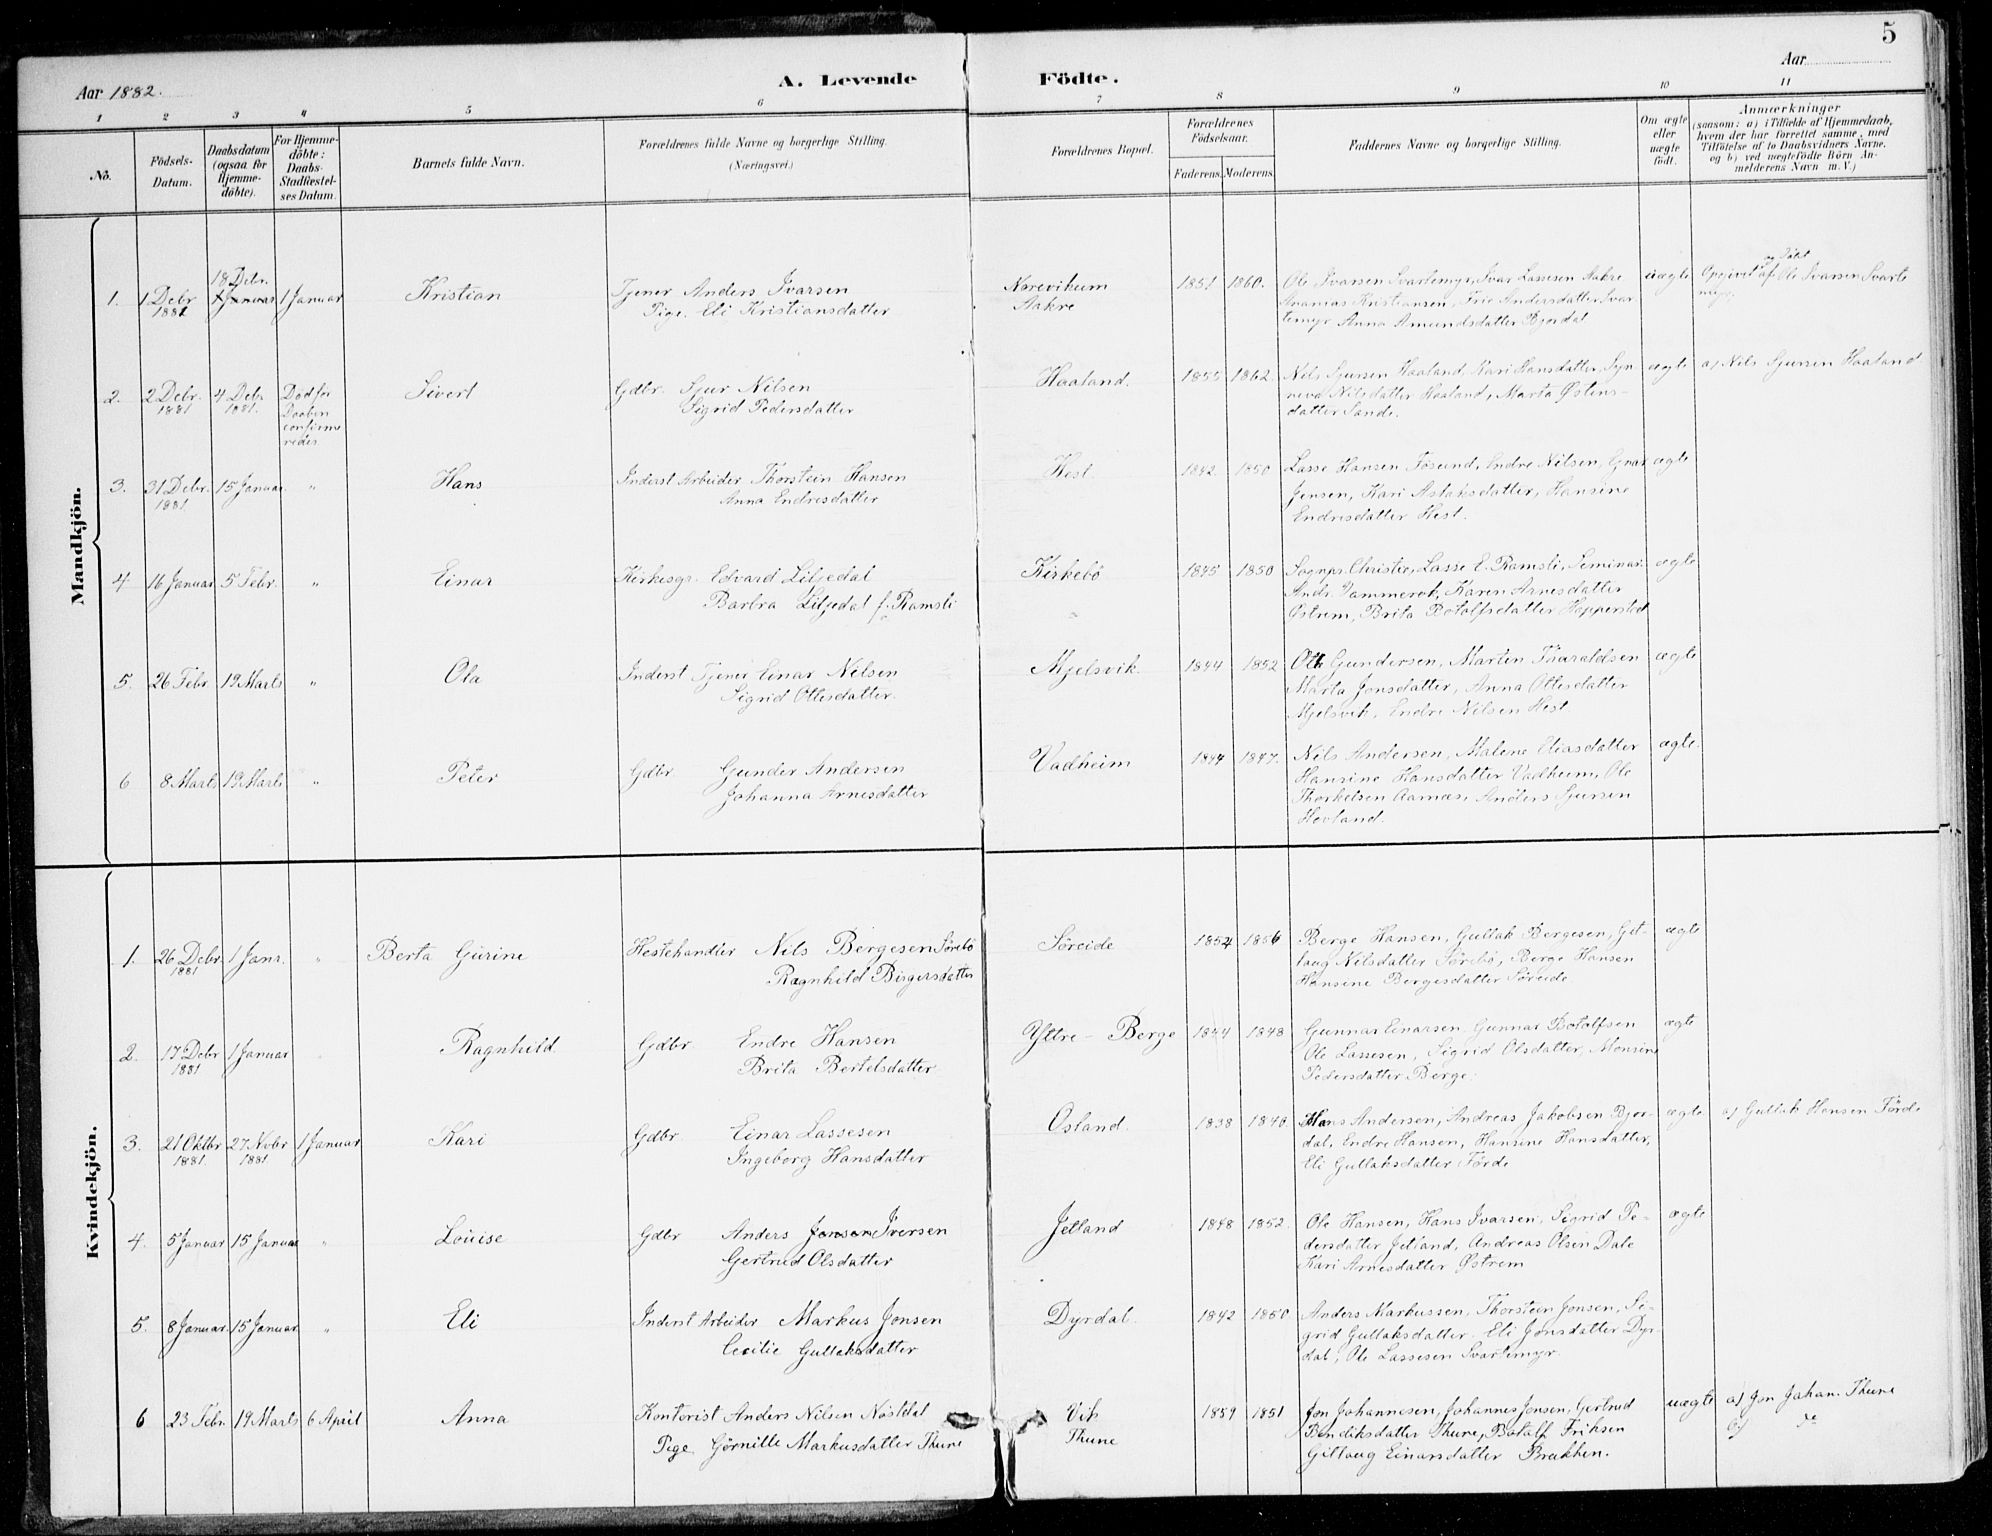 5
Aar 1882.
A. Levende Födte.
Aar
1 2 3 4 5 6 7 8 9 10 11
No.
Födsels-Datum.
Daabsdatum (ogsaa for Hjemme-döbte).
For Hjemme-döbte: Daabs-Stadfæstel-ses Datum.
Barnets fulde Navn.
Forældrenes fulde Navne og borgerlige Stilling.
(Næringsvei.)
Forældrenes Bopæl.
Forældrenes Födselsaar.
Faderens. Moderens.
Faddernes Navne og borgerlige Stilling.
Om ægte eller uægte födt.
Anmærkninger
(saasom: a) i Tilfælde af Hjemmedaab, hvem der har forrettet samme, med Tilföielse af to Daabsvidners Navne, og b) ved uægtefödte Börn An-melderens Navn m. V.)
Mandkjön.
1. 1 Debr 1881 18 Debr. 1 Januar 1 Januar Kristian
Tjener Anders Ivarsen
Pige. Eli Kristiansdatter
Nærevikum
Aakre
1851 1860.
Ole Ivarsen Svartemyr, Ivar Lassesen Aakre
Ananias Kristiansen, Fric Andersdatter Svar-
temyr Anna Amundsdatter Bjordal
uægte
Opgivet og döbt af Ole Ivarsen Svarte
myr.
2. 2 Debr. 1881 4 Debr 1881. Död för Daaben confirme redes. Sivert
Gdbr. Sjur Nilsen
Sigrid Pedersdatter
Haaland. 1855 1862.
Nils Sjursen Haaland, Kari Hansdatter, Syn-
neva Nilsdatter Haaland, Marta Østens-
datter Sande.
ægte
a) Nils Sjursen Haaland
3. 31 Debr. 1881 15 Januar " Hans
Inderst Arbeider Thorstein Hansen
Anna Endresdatter
Hest. 1842 1850
Lasse Hansen Fösund, Endre Nilsen,
Jensen, Kari Aslaksdatter, Hansine
Endresdatter Hest.
ægte
4 16 Januar 5 Febr. " Einar
Kirkesgr. Edvard Liljedal
Barbra Liljedal f. Ramsli
Kirkebö
"
1845 1850
Sognpr. Christie, Lasse E. Ramsli, Seminar.
Andr. Vammervk, Karen Arnesdatter
Østrem, Brita Botolfsdatter Hopperstad
ægte
5. 26 Febr 19 Marts " Ola
Inderst Tjener Einar Nilsen
Sigrid Ottesdatter.
Mjelsvik. 1844 1852
Ole Gundersen, Marten Tharaldsen
Marta Jonsdatter, Anna Ottesdatter
Mjelsvik, Endre Nilsen Hest
ægte
6 8 Marts 19 Marts " Peter
Gdbr. Gunder Andersen
Johanna Arnesdatter
Vadheim 1844 1847.
Nils Andersen, Malene Eliasdatter
Hansine Hansdatter Vadheim, Ole
Thorkelsen Aamas, Anders Sjursen
Hovland.
ægte.
Kvindekjön.
1. 26 Debr. 1881 1 Janr. " Berta Gurine
Hestehandler Nils Bergesen Sörebö
Ragnhild Birgersdatter
Söreide 1854 1856
Berge Hansen, Gullak Bergesen, Git-
laug Nilsdatter Sörebö, Berge Hansen
Hansine Bergesdatter Söreide.
ægte
2. 17 Debr 1881 1 Januar Ragnhild.
Gdbr. Endre Hansen
Brita Bertelsdatter
Yttre - Berge 1844 1848
Gunnar Einarsen, Gunnar Botolfsen
Ole Lassesen, Sigrid Olsdatter, Monsine
Pedersdatter Berge.
ægte
3. 21 Oktbr 1881. 27 Novbr 1881. 1 Januar Kari
Gdbr. Einar Lassesen
Ingeborg Hansdatter
Osland. 1838 1840.
Hans Andersen, Andreas Jakobsen Bjor-
dal, Endre Hansen, Hansine Hansdatter,
Eli Gullaksdatter Förde
ægte.
a) Gullak Hansen Förde
4. 5 Januar 15 Januar " Louise
Gdbr Anders Jonsen Iversen
Gertrud Olsdatter
Jetland 1848 1852.
Ole Hansen, Hans Ivarsen, Sigrid Pe-
dersdatter Jetland, Andreas Olsen Dale
Kari Arnesdatter Østrem
ægte
5. 8 Januar 15 Januar. " Eli
Inderst Arbeider Markus Jonsen
Cecilie Gullaksdatter
Dyrdal. 1842 1850
Anders Markussen, Thorstein Jonsen, Si-
grid Gullaksdatter. Eli Jonsdatter Dyr-
dal, Ole Lassesen Svartemyr.
6 23 Febr. 19 Marts 6 April Anna
Kontorist Anders Nilsen Nöstdal
Pige Görnille Markusdatter Thune
Vik
Thune
1859 1851
Jon Johannesen, Johannes Jonsen, Gertrud
Bendiksdatter Thune, Botolf Friksen
Gitlaug Einarsdatter Brækken.
uægte
a) Jon Johan. Thune
b) do